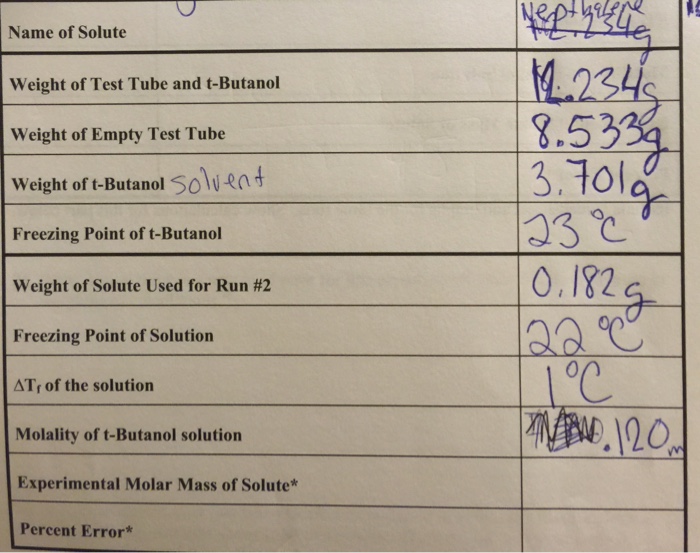 Name of Solute Nepthalene
Weight of Test Tube and t-Butanol 12.234g
Weight of Empty Test Tube 8.533g
Weight of t-Butanol solvent 3.701g
Freezing Point of t-Butanol 23°C
Weight of Solute Used for Run #2 0.182g
Freezing Point of Solution 22°C
ΔTf of the solution 1°C
Molality of t-Butanol solution .120m
Experimental Molar Mass of Solute*
Percent Error*